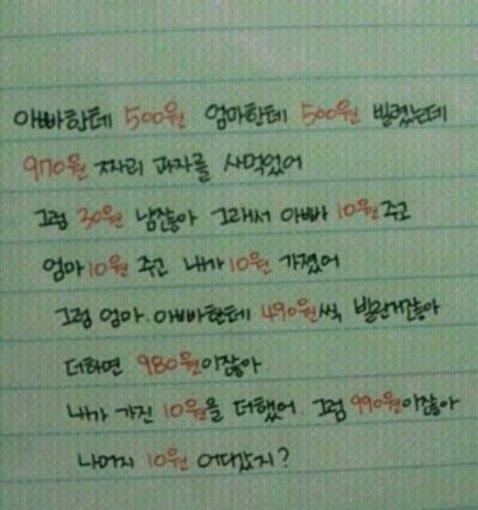 아빠한테 500원 엄마한테 500원 빌렸는데
970원 짜리 과자를 사먹었어
그럼 30원 남잖아 그래서 아빠 10원 주고
엄마 10원 주고 내가 10원 가졌어
그럼 엄마. 아빠한테 490원씩 빌린거잖아
더하면 980원이잖아
내가 가진 10원을 더했어. 그럼 990원이잖아
나머지 10원 어디갔지?